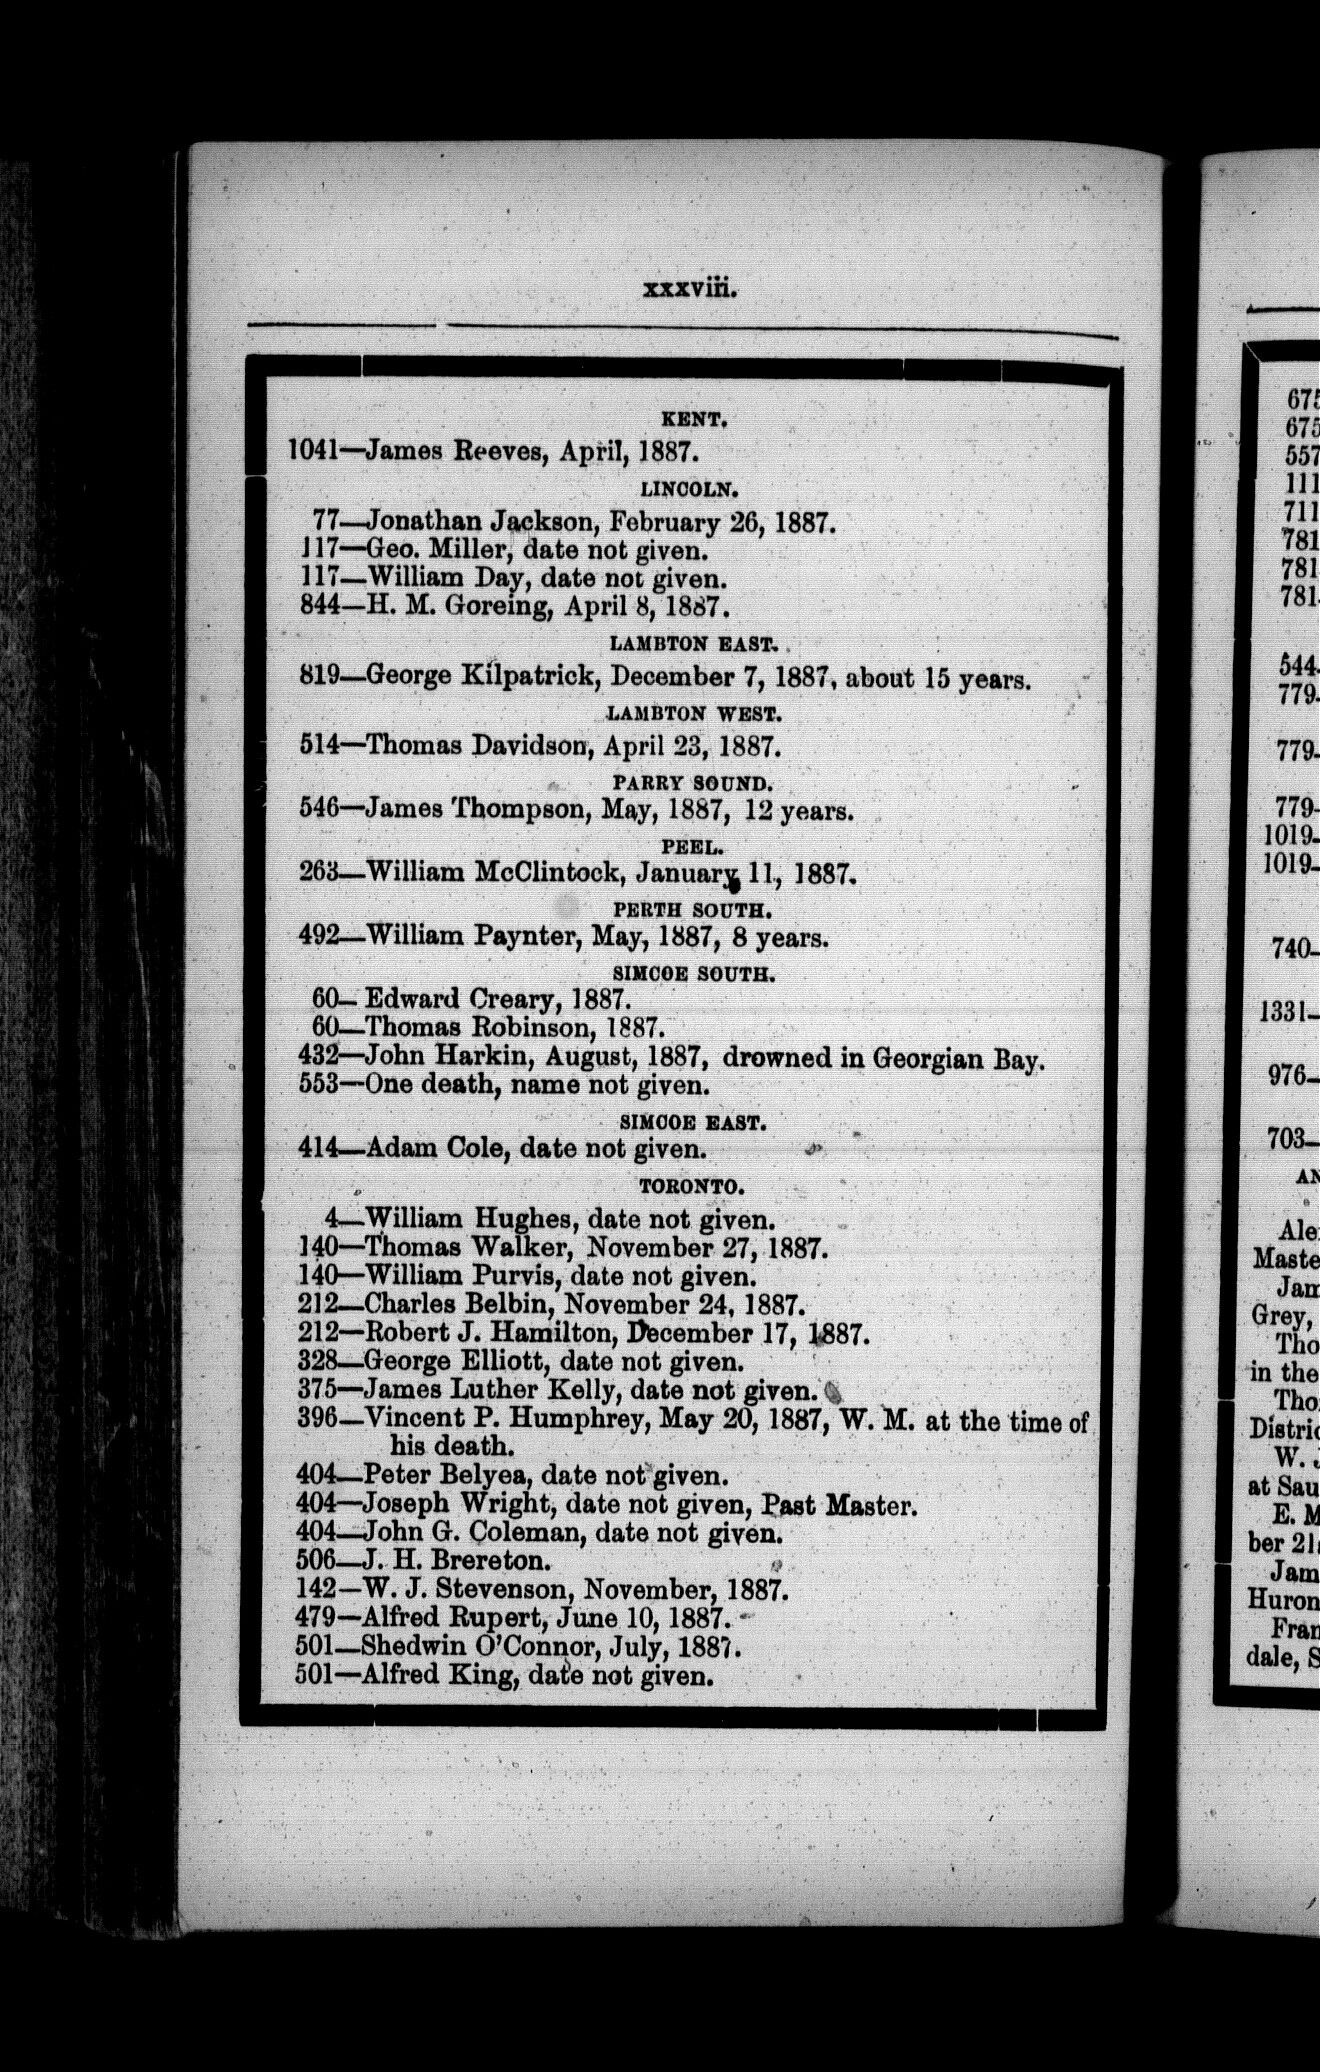 xxxviii.
KENT.
1041—James Reeves, April, 1887.
LINCOLN.
77—Jonathan Jackson, February 26, 1887.
117—Geo. Miller, date not given.
117—William Day, date not given.
844—H. M. Goreing, April 8, 1887.
LAMBTON EAST.
819—George Kilpatrick, December 7, 1887, about 15 years.
LAMBTON WEST.
514—Thomas Davidson, April 23, 1887.
PARRY SOUND.
546—James Thompson, May, 1887, 12 years.
PEEL.
263—William McClintock, January 11, 1887.
PERTH SOUTH.
492—William Paynter, May, 1887, 8 years.
SIMCOE SOUTH.
60— Edward Creary, 1887.
60—Thomas Robinson, 1887.
432—John Harkin, August, 1887, drowned in Georgian Bay.
553—One death, name not given.
SIMCOE EAST.
414—Adam Cole, date not given.
TORONTO.
4—William Hughes, date not given.
140—Thomas Walker, November 27, 1887.
140—William Purvis, date not given.
212—Charles Belbin, November 24, 1887.
212—Robert J. Hamilton, December 17, 1887.
328—George Elliott, date not given.
375—James Luther Kelly, date not given.
396—Vincent P. Humphrey, May 20, 1887, W. M. at the time of
his death.
404—Peter Belyea, date not given.
404—Joseph Wright, date not given, Past Master.
404—John G. Coleman, date not given.
506—J. H. Brereton.
142—W. J. Stevenson, November, 1887.
479—Alfred Rupert, June 10, 1887.
501—Shedwin O'Connor, July, 1887.
501—Alfred King, date not given.
675
675
557
111
711
781
781
781-
544-
779-
779-
779-
1019-
1019-
740-
1331-
976-
703-
Grey,
in the
at Sau
Huron
dale, S